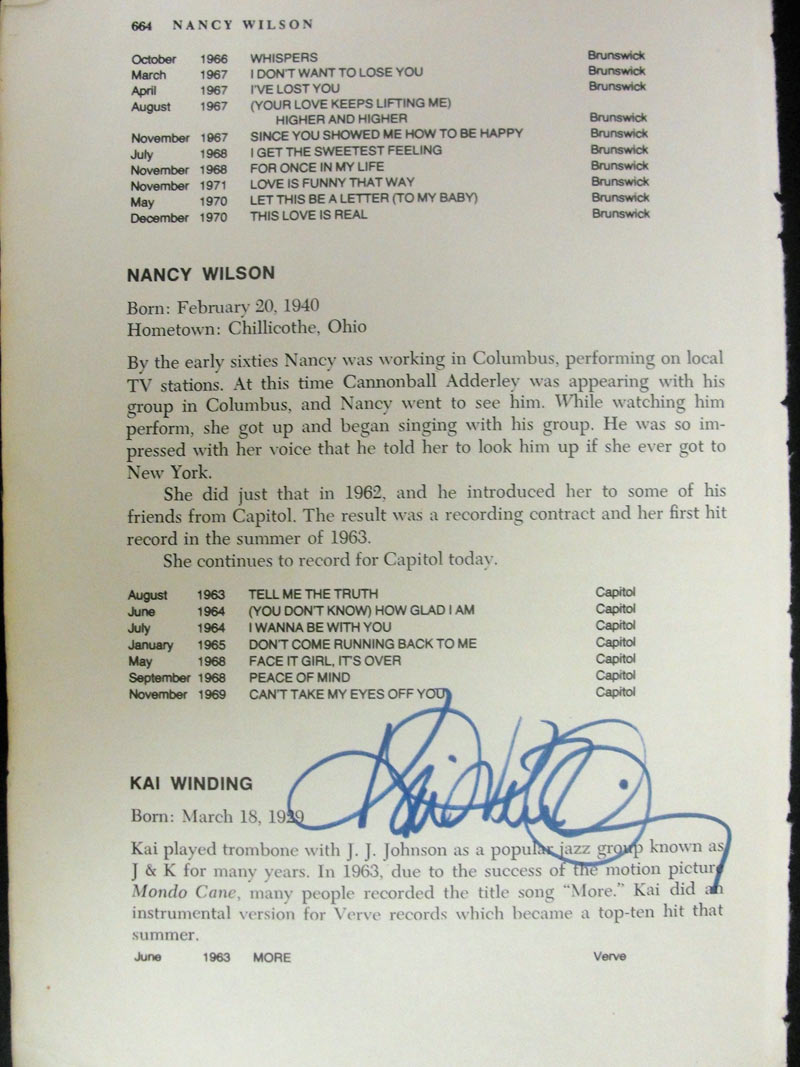 664 NANCY WILSON
October 1966 WHISPERS Brunswick
March 1967 I DON'T WANT TO LOSE YOU Brunswick
April 1967 I'VE LOST YOU Brunswick
August 1967 (YOUR LOVE KEEPS LIFTING ME)
HIGHER AND HIGHER Brunswick
November 1967 SINCE YOU SHOWED ME HOW TO BE HAPPY Brunswick
July 1968 I GET THE SWEETEST FEELING Brunswick
November 1968 FOR ONCE IN MY LIFE Brunswick
November 1971 LOVE IS FUNNY THAT WAY Brunswick
May 1970 LET THIS BE A LETTER (TO MY BABY) Brunswick
December 1970 THIS LOVE IS REAL Brunswick
NANCY WILSON
Born: February 20, 1940
Hometown: Chillicothe, Ohio
By the early sixties Nancy was working in Columbus, performing on local
TV stations. At this time Cannonball Adderley was appearing with his
group in Columbus, and Nancy went to see him. While watching him
perform, she got up and began singing with his group. He was so im-
pressed with her voice that he told her to look him up if she ever got to
New York.
She did just that in 1962, and he introduced her to some of his
friends from Capitol. The result was a recording contract and her first hit
record in the summer of 1963.
She continues to record for Capitol today.
August 1963 TELL ME THE TRUTH Capitol
June 1964 (YOU DON'T KNOW) HOW GLAD I AM Capitol
July 1964 I WANNA BE WITH YOU Capitol
January 1965 DON'T COME RUNNING BACK TO ME Capitol
May 1968 FACE IT GIRL, IT'S OVER Capitol
September 1968 PEACE OF MIND Capitol
November 1969 CAN'T TAKE MY EYES OFF YOU Capitol
KAI WINDING
Born: March 18, 1929
Kai played trombone with J. J. Johnson as a popular jazz group known as
J & K for many years. In 1963, due to the success of the motion picture
Mondo Cane, many people recorded the title song "More." Kai did an
instrumental version for Verve records which became a top-ten hit that
summer.
June 1963 MORE Verve